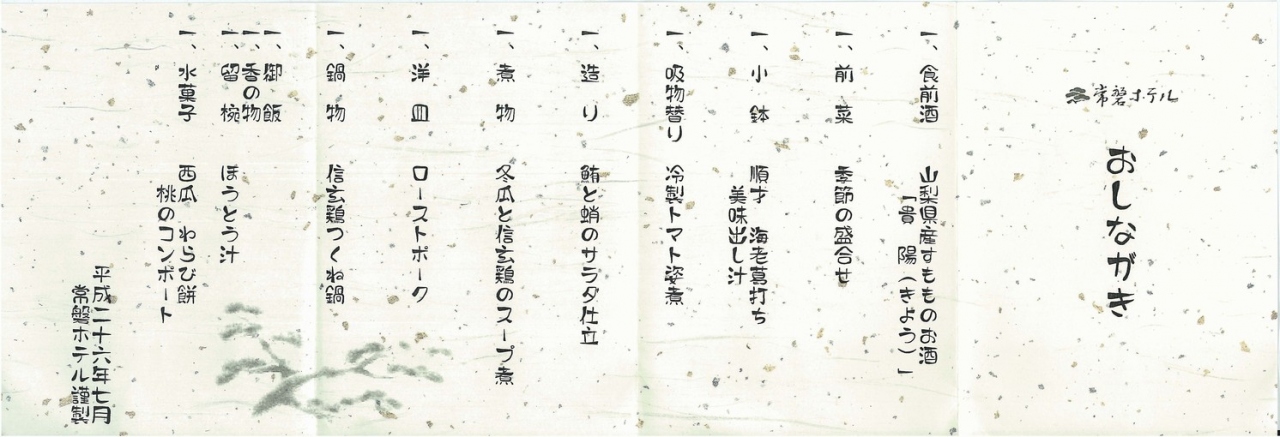 常磐ホテル
おしながき
一、食前酒 山梨県産すもものお酒
「貴 陽（きよう）」
一、前菜 季節の盛合せ
一、小鉢 順才 海老葛打ち
美味出し汁
一、吸物替り 冷製トマト姿煮
一、造り 鮪と蛸のサラダ仕立
一、煮物 冬瓜と信玄鶏のスープ煮
一、洋皿 ローストポーク
一、鍋物 信玄鶏つくね鍋
一、御飯
一、香の物
一、留椀 ほうとう汁
一、水菓子 西瓜 わらび餅
桃のコンポート
平成二十六年七月
常磐ホテル謹製